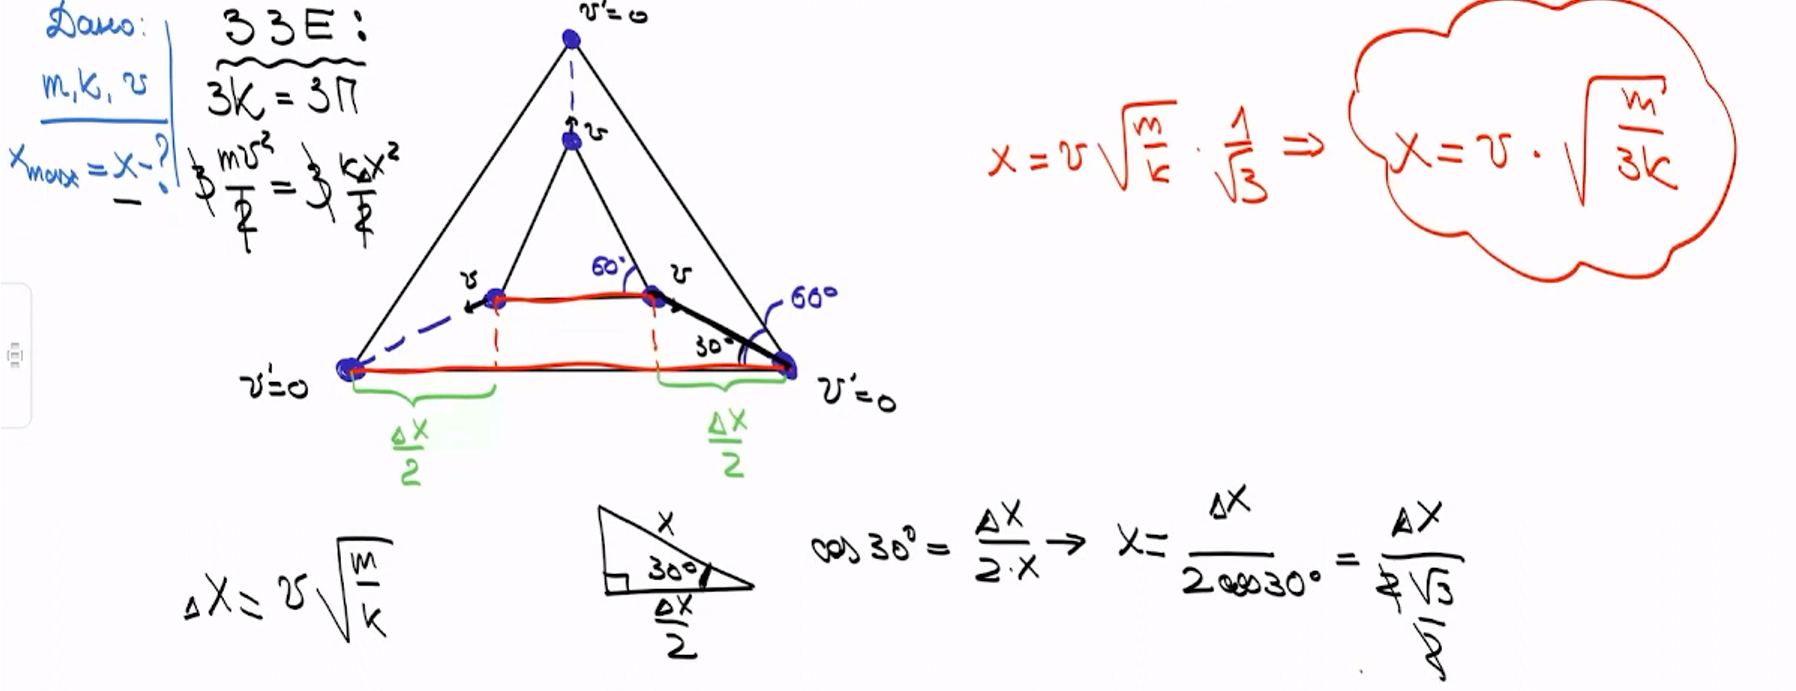 Дано:
m, k, v
x_max = x - ?
ЗЗЕ:
3К = 3П
3 mv²/2 = 3 kΔx²/2
v'=0
v
v
60°
v
60°
30°
v'=0
v'=0
Δx/2
Δx/2
x = v √(m/k) · 1/√3 ⇒ x = v · √(m/3k)
Δx = v √(m/k)
x
30°
Δx/2
cos 30° = Δx/(2·x) → x = Δx/(2 cos 30°) = Δx/(2 √3/2)